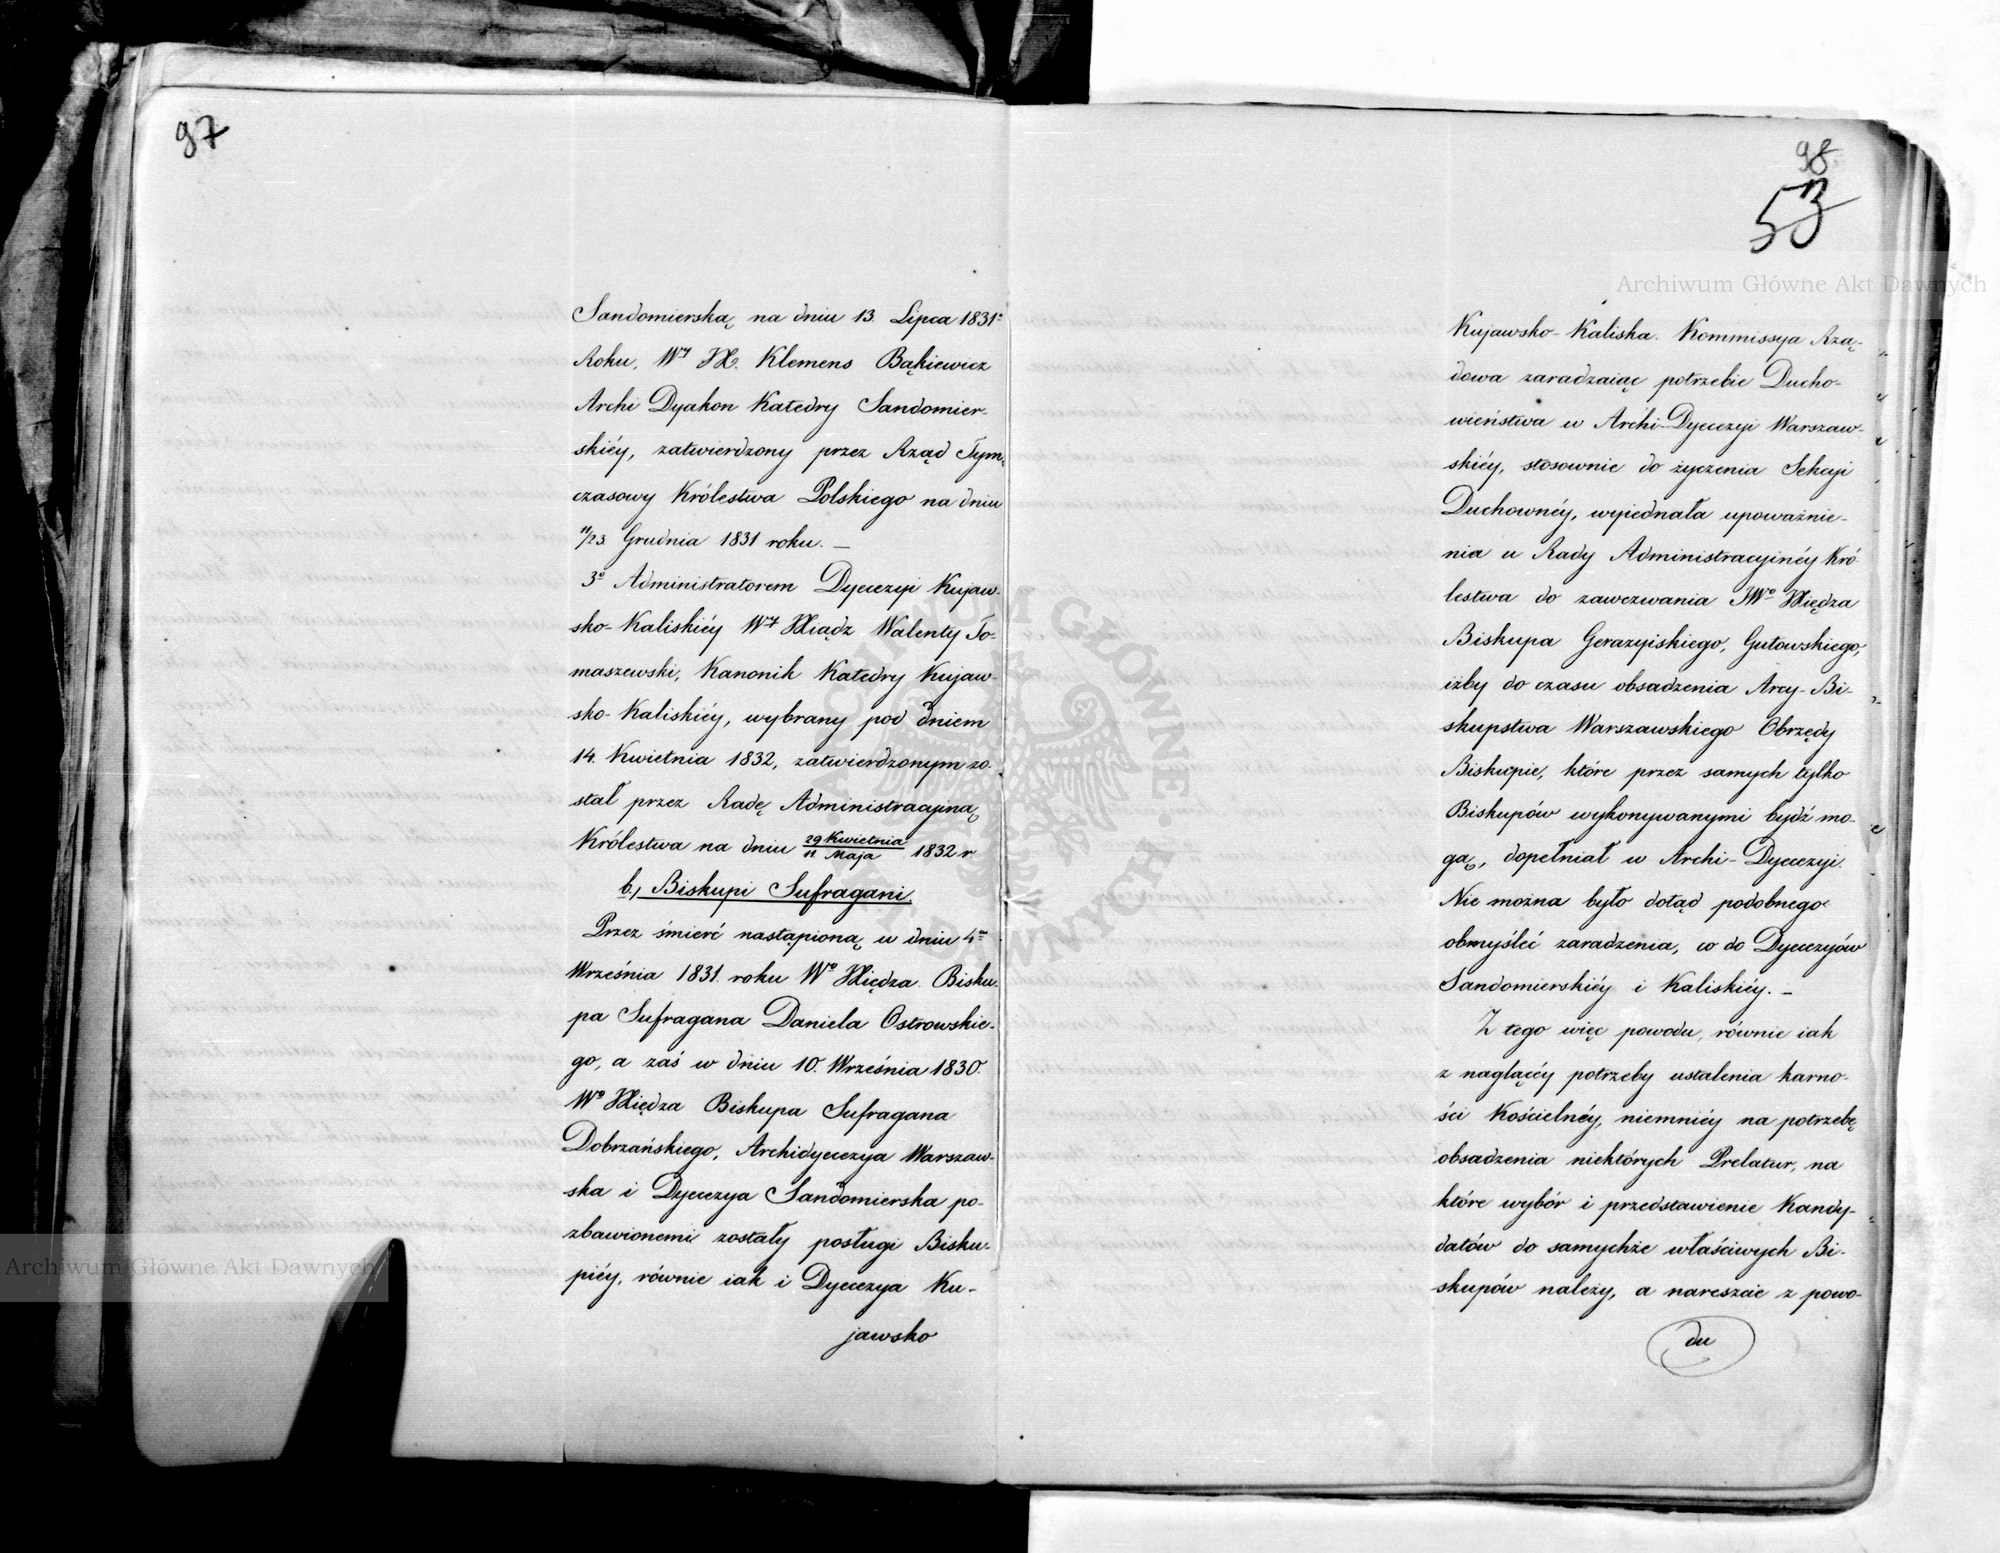 97
Sandomierską na dniu 13. Lipca 1831º
Roku, Wy JX. Klemens Bąkiewicz
Archi Dyakon Katedry Sandomier-
skiéy, zatwierdzony przez Rząd Tym-
czasowy Królestwa Polskiego na dniu
11/23 Grudnia 1831 roku. —
3º Administratorem Dyecezyi Kujaw-
sko-Kaliskiéy Wy Xiądz Walenty To-
maszewski, Kanonik Katedry Kujaw-
sko-Kaliskiéy, wybrany pod dniem
14. Kwietnia 1832, zatwierdzonym zo-
stał przez Radę Administracyiną
Królestwa na dniu 29 Kwietnia/11 Maja 1832 r.
b., Biskupi Sufragani.
Przez śmierć nastąpioną w dniu 4m
Września 1831. roku Wº Xiędza Bisku-
pa Sufragana Daniela Ostrowskie-
go, a zaś w dniu 10. Września 1830.
Wº Xiędza Biskupa Sufragana
Dobrzańskiego, Archidyecezya Warszaw-
ska i Dyecezya Sandomierska po-
zbawionemi zostały posługi Bisku-
piéy, równie iak i Dyecezya Ku-
jawsko
98
53
Kujawsko-Kaliska. Kommissya Rzą-
dowa zaradzaiąc potrzebie Ducho-
wieństwa w Archi-Dyecezyi Warszaw-
skiéy, stosownie do życzenia Sekcyi
Duchownéy, wyiednała upoważnie-
nia u Rady Administracyinéy Kró
lestwa do zawezwania JWº Xiędza
Biskupa Gerazyiskiego, Gutowskiego,
iżby do czasu obsadzenia Arcy-Bi-
skupstwa Warszawskiego Obrzędy
Biskupie, które przez samych tylko
Biskupów wykonywanymi bydź mo-
gą, dopełniał w Archi-Dyecezyi.
Nie można było dotąd podobnego
obmyśléć zaradzenia, co do Dyecezyów
Sandomierskiéy i Kaliskiéy. —
Z tego więc powodu, równie iak
z naglącéy potrzeby ustalenia karno-
ści Kościelnéy, niemniéy na potrzebę
obsadzenia niektórych Prelatur, na
które wybór i przedstawienie Kandy-
datów do samychże właściwych Bi-
skupów należy, a nareszcie z powo-
du
Archiwum Główne Akt Dawnych
Archiwum Główne Akt Dawnych
ARCHIWUM GŁÓWNE AKT DAWNYCH